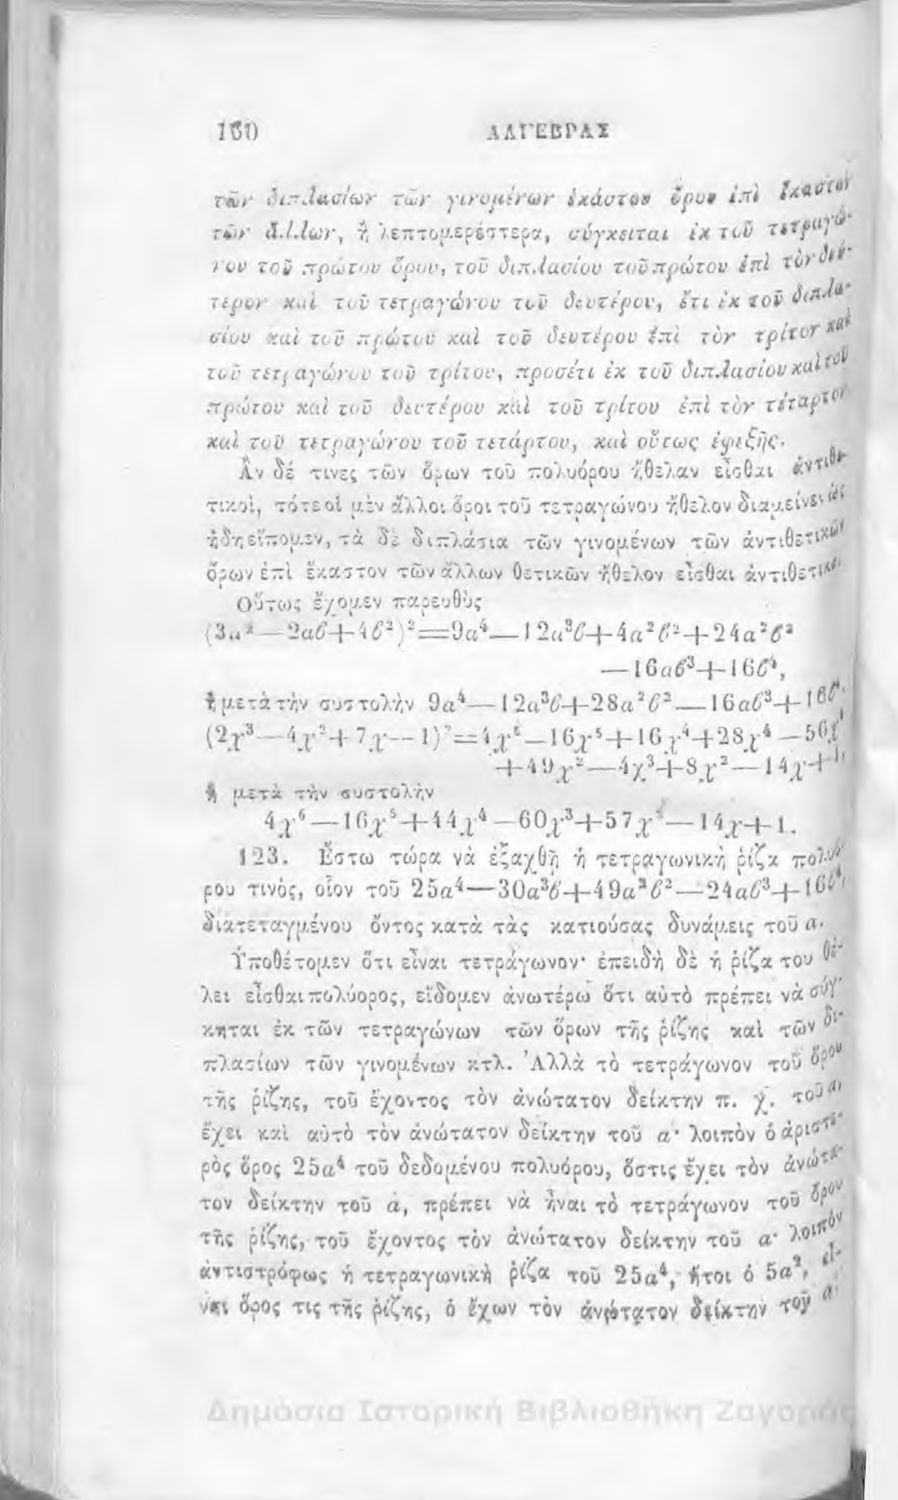 150 ΑΛΓΕΒΡΑΣ
τῶν διπλασίων τῶν γινομένων ἑκάστου ὅρου ἐπὶ ἕκαστον
τῶν ἄλλων, ἢ λεπτομερέστερα, σύγκειται ἐκ τοῦ τετραγώ-
νου τοῦ πρώτου ὅρου, τοῦ διπλασίου τοῦ πρώτου ἐπὶ τὸν δεύ-
τερον καὶ τοῦ τετραγώνου τοῦ δευτέρου, ἔτι ἐκ τοῦ διπλα-
σίου καὶ τοῦ πρώτου καὶ τοῦ δευτέρου ἐπὶ τὸν τρίτον καὶ
τοῦ τετραγώνου τοῦ τρίτου, προσέτι ἐκ τοῦ διπλασίου καὶ τοῦ
πρώτου καὶ τοῦ δευτέρου καὶ τοῦ τρίτου ἐπὶ τὸν τέταρτον
καὶ τοῦ τετραγώνου τοῦ τετάρτου, καὶ οὕτως ἐφεξῆς.
Ἂν δέ τινες τῶν ὅρων τοῦ πολυόρου ἤθελαν εἶσθαι ἀντιθε-
τικοὶ, τότε οἱ μὲν ἄλλοι ὅροι τοῦ τετραγώνου ἤθελον διαμείνει ὡς
ἤδη εἴπομεν, τὰ δὲ διπλάσια τῶν γινομένων τῶν ἀντιθετικῶν
ὅρων ἐπὶ ἕκαστον τῶν ἄλλων θετικῶν ἤθελον εἶσθαι ἀντιθετικά.
Οὕτως ἔχομεν παρευθὺς
(3α²—2αϐ+4ϐ²)²=9α⁴—12α³ϐ+4α²ϐ²+24α²ϐ²
—16αϐ³+16ϐ⁴,
ἢ μετὰ τὴν συστολὴν 9α⁴—12α³ϐ+28α²ϐ²—16αϐ³+16ϐ⁴.
(2χ³—4χ²+7χ—1)²=4χ⁶—16χ⁵+16χ⁴+28χ⁴—56χ³
+49χ²—4χ³+8χ²—14χ+1,
ἢ μετὰ τὴν συστολὴν
4χ⁶—16χ⁵+44χ⁴—60χ³+57χ²—14χ+1.
123. Ἔστω τώρα νὰ ἐξαχθῇ ἡ τετραγωνικὴ ῥίζα πολυό-
ρου τινὸς, οἷον τοῦ 25α⁴—30α³ϐ+49α²ϐ²—24αϐ³+16ϐ⁴,
διατεταγμένου ὄντος κατὰ τὰς κατιούσας δυνάμεις τοῦ α.
Ὑποθέτομεν ὅτι εἶναι τετράγωνον· ἐπειδὴ δὲ ἡ ῥίζα του θέ-
λει εἶσθαι πολύορος, εἴδομεν ἀνωτέρω ὅτι αὐτὸ πρέπει νὰ σύγ-
κηται ἐκ τῶν τετραγώνων τῶν ὅρων τῆς ῥίζης καὶ τῶν δι-
πλασίων τῶν γινομένων κτλ. Ἀλλὰ τὸ τετράγωνον τοῦ ὅρου
τῆς ῥίζης, τοῦ ἔχοντος τὸν ἀνώτατον δείκτην π. χ. τοῦ α,
ἔχει καὶ αὐτὸ τὸν ἀνώτατον δείκτην τοῦ α· λοιπὸν ὁ ἀριστε-
ρὸς ὅρος 25α⁴ τοῦ δεδομένου πολυόρου, ὅστις ἔχει τὸν ἀνώτα-
τον δείκτην τοῦ α, πρέπει νὰ ἦναι τὸ τετράγωνον τοῦ ὅρου
τῆς ῥίζης, τοῦ ἔχοντος τὸν ἀνώτατον δείκτην τοῦ α· λοιπὸν
ἀντιστρόφως ἡ τετραγωνικὴ ῥίζα τοῦ 25α⁴, ἤτοι ὁ 5α², εἶ-
ναι ὅρος τις τῆς ῥίζης, ὁ ἔχων τὸν ἀνώτατον δείκτην τοῦ α·
Δημόσια Ιστορική Βιβλιοθήκη Ζαγοράς